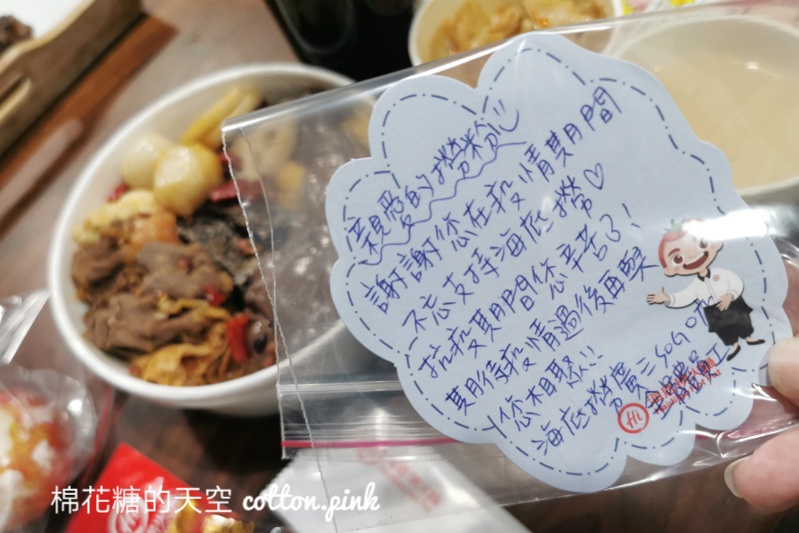 親愛的撈粉
謝謝您在疫情期間
不忘支持海底撈♡
抗疫期間您辛苦了!
期待疫情過後再與
您相聚!!
海底撈廣三SOGO店
全體員工
Hi
棉花糖的天空 cotton.pink